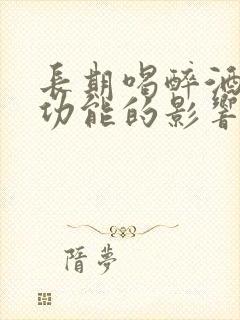 長期喝醉酒
功能的影響
隋夢